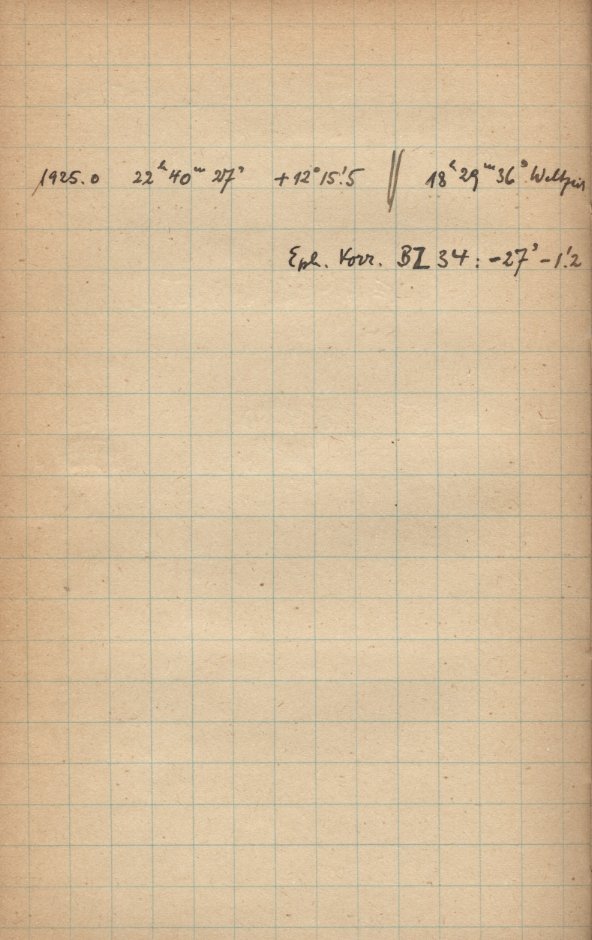 1925.0 22ʰ40ᵐ27ˢ +12°15'.5 || 18ʰ29ᵐ36ˢ Weltzeit
Eph. Korr. BZ 34: -27ˢ -1'.2